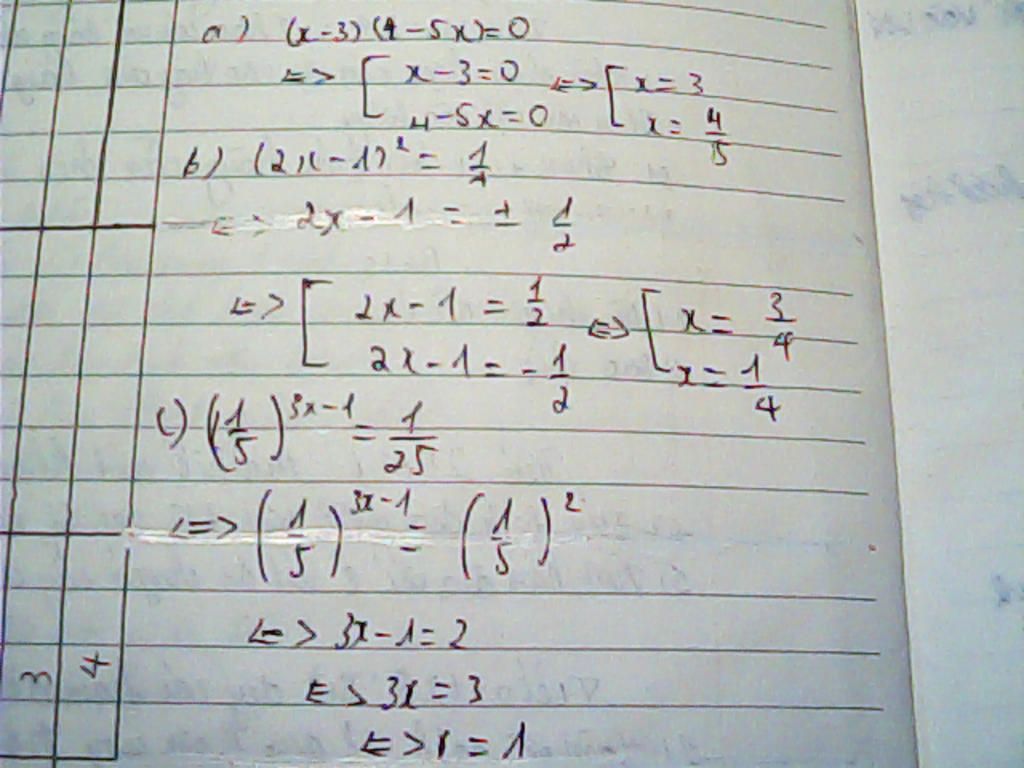 a) (x-3)(4-5x)=0
<=> [ x-3=0 <=> [ x=3
4-5x=0 x=4/5
b) (2x-1)² = 1/4
<=> 2x-1 = ± 1/2
<=> [ 2x-1 = 1/2 <=> [ x= 3/4
2x-1=-1/2 x=1/4
c) (1/5)^(3x-1) = 1/25
<=> (1/5)^(3x-1) = (1/5)^2
<=> 3x-1=2
<=> 3x=3
<=> x=1